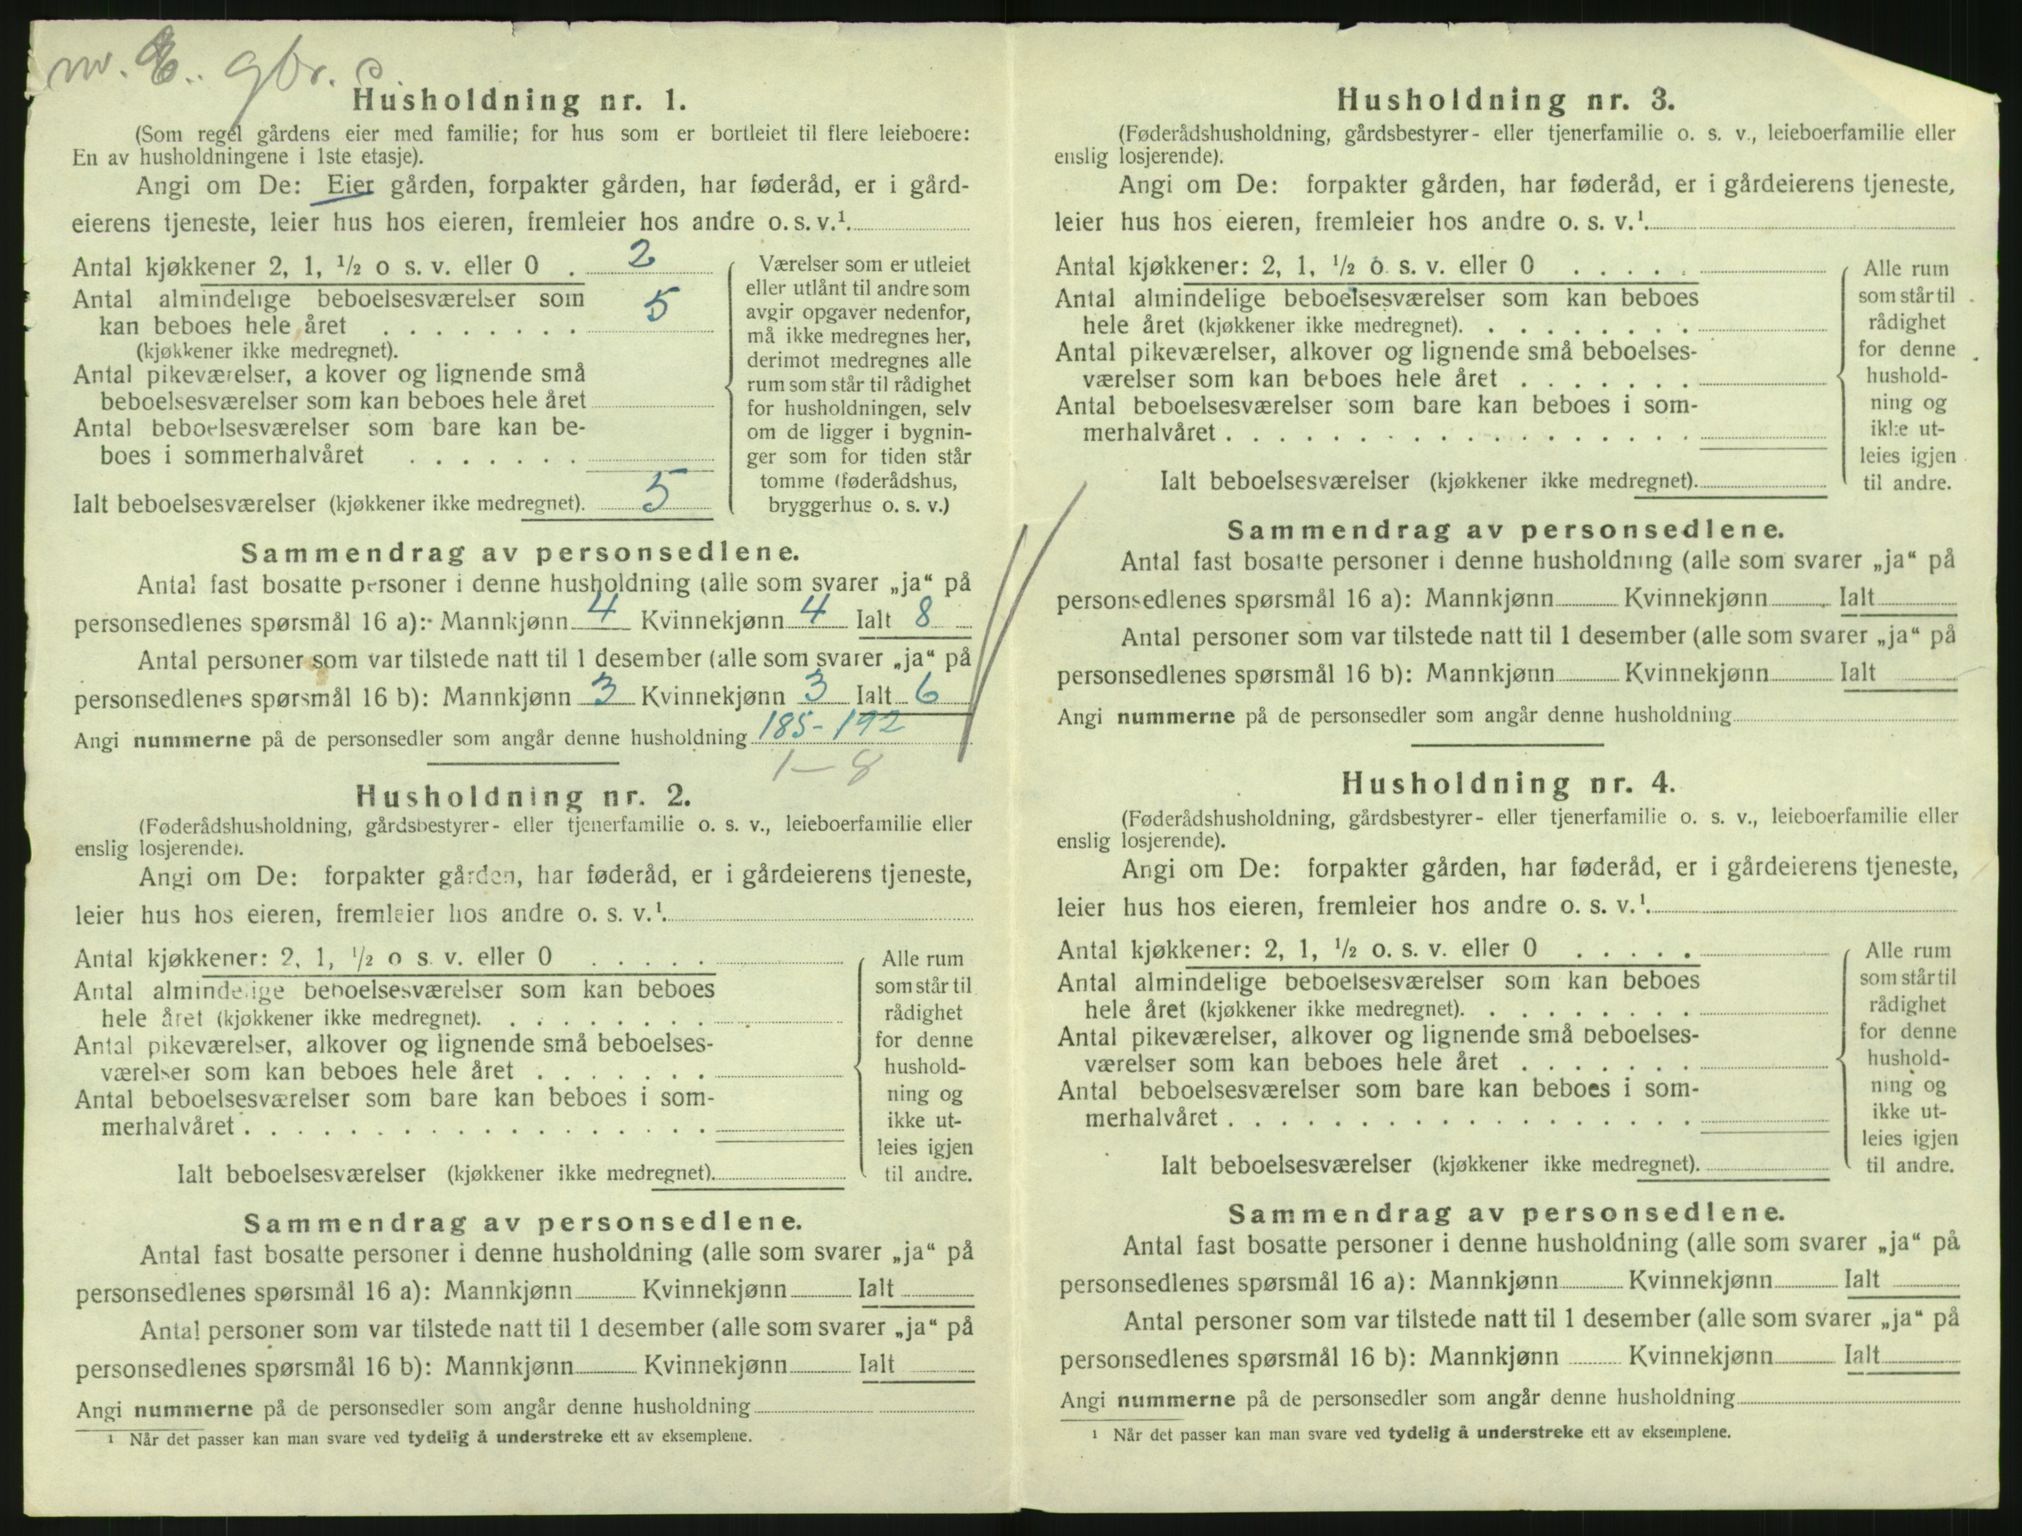 Husholdning nr. 1.
(Som regel gårdens eier med familie; for hus som er bortleiet til flere leieboere:
En av husholdningene i 1ste etasje).
Angi om De: Eier gården, forpakter gården, har føderåd, er i gård-
eierens tjeneste, leier hus hos eieren, fremleier hos andre o. s. v.¹.
Antal kjøkkener 2, 1, ½ o s. v. eller 0 . 2
Antal almindelige beboelsesværelser som
kan beboes hele året . . . . . . . . 5
(kjøkkener ikke medregnet).
Antal pikeværelser, a kover og lignende små
beboelsesværelser som kan beboes hele året
Antal beboelsesværelser som bare kan be-
boes i sommerhalvåret . . . . . . .
Ialt beboelsesværelser (kjøkkener ikke medregnet). 5
Værelser som er utleiet
eller utlånt til andre som
avgir opgaver nedenfor,
må ikke medregnes her,
derimot medregnes alle
rum som står til rådighet
for husholdningen, selv
om de ligger i bygnin-
ger som for tiden står
tomme (føderådshus,
bryggerhus o. s. v.)
Sammendrag av personsedlene.
Antal fast bosatte personer i denne husholdning (alle som svarer „ja“ på
personsedlenes spørsmål 16 a): Mannkjønn 4 Kvinnekjønn 4 Ialt 8
Antal personer som var tilstede natt til 1 desember (alle som svarer „ja“ på
personsedlenes spørsmål 16 b): Mannkjønn 3 Kvinnekjønn 3 Ialt 6
Angi nummerne på de personsedler som angår denne husholdning 185-192
1-8
Husholdning nr. 2.
(Føderådshusholdning, gårdsbestyrer- eller tjenerfamilie o. s. v., leieboerfamilie eller
enslig losjerende).
Angi om De: forpakter gården, har føderåd, er i gårdeierens tjeneste,
leier hus hos eieren, fremleier hos andre o. s. v.¹.
Antal kjøkkener: 2, 1, ½ o s. v. eller 0 . . . . .
Antal almindelige beboelsesværelser som kan beboes
hele året (kjøkkener ikke medregnet). . . . . . . . .
Antal pikeværelser, alkover og lignende små beboelses-
værelser som kan beboes hele året . . . . . . .
Antal beboelsesværelser som bare kan beboes i som-
merhalvåret . . . . . . . . . . . . . . . . . .
Ialt beboelsesværelser (kjøkkener ikke medregnet).
Alle rum
som står til
rådighet
for denne
hushold-
ning og
ikke ut-
leies igjen
til andre.
Sammendrag av personsedlene.
Antal fast bosatte personer i denne husholdning (alle som svarer „ja“ på
personsedlenes spørsmål 16 a): Mannkjønn Kvinnekjønn Ialt
Antal personer som var tilstede natt til 1 desember (alle som svarer „ja“ på
personsedlenes spørsmål 16 b): Mannkjønn Kvinnekjønn Ialt
Angi nummerne på de personsedler som angår denne husholdning
¹ Når det passer kan man svare ved tydelig å understreke ett av eksemplene.
Husholdning nr. 3.
(Føderådshusholdning, gårdsbestyrer- eller tjenerfamilie o. s. v., leieboerfamilie eller
enslig losjerende).
Angi om De: forpakter gården, har føderåd, er i gårdeierens tjeneste,
leier hus hos eieren, fremleier hos andre o. s. v.¹.
Antal kjøkkener: 2, 1, ½ o. s. v. eller 0 . . . . .
Antal almindelige beboelsesværelser som kan beboes
hele året (kjøkkener ikke medregnet). . . . . . . . .
Antal pikeværelser, alkover og lignende små beboelses-
værelser som kan beboes hele året . . . . . . .
Antal beboelsesværelser som bare kan beboes i som-
merhalvåret . . . . . . . . . . . . . . . . . .
Ialt beboelsesværelser (kjøkkener ikke medregnet).
Alle rum
som står til
rådighet
for denne
hushold-
ning og
ikke ut-
leies igjen
til andre.
Sammendrag av personsedlene.
Antal fast bosatte personer i denne husholdning (alle som svarer „ja“ på
personsedlenes spørsmål 16 a): Mannkjønn Kvinnekjønn Ialt
Antal personer som var tilstede natt til 1 desember (alle som svarer „ja“ på
personsedlenes spørsmål 16 b): Mannkjønn Kvinnekjønn Ialt
Angi nummerne på de personsedler som angår denne husholdning
Husholdning nr. 4.
(Føderådshusholdning, gårdsbestyrer- eller tjenerfamilie o. s. v., leieboerfamilie eller
enslig losjerende).
Angi om De: forpakter gården, har føderåd, er i gårdeierens tjeneste,
leier hus hos eieren, fremleier hos andre o. s. v.¹.
Antal kjøkkener: 2, 1, ½ o. s. v. eller 0 . . . . .
Antal almindelige beboelsesværelser som kan beboes
hele året (kjøkkener ikke medregnet). . . . . . . . .
Antal pikeværelser, alkover og lignende små beboelses-
værelser som kan beboes hele året . . . . . . .
Antal beboelsesværelser som bare kan beboes i som-
merhalvåret . . . . . . . . . . . . . . . . . .
Ialt beboelsesværelser (kjøkkener ikke medregnet).
Alle rum
som står til
rådighet
for denne
hushold-
ning og
ikke ut-
leies igjen
til andre.
Sammendrag av personsedlene.
Antal fast bosatte personer i denne husholdning (alle som svarer „ja“ på
personsedlenes spørsmål 16 a): Mannkjønn Kvinnekjønn Ialt
Antal personer som var tilstede natt til 1 desember (alle som svarer „ja“ på
personsedlenes spørsmål 16 b): Mannkjønn Kvinnekjønn Ialt
Angi nummerne på de personsedler som angår denne husholdning
¹ Når det passer kan man svare ved tydelig å understreke ett av eksemplene.